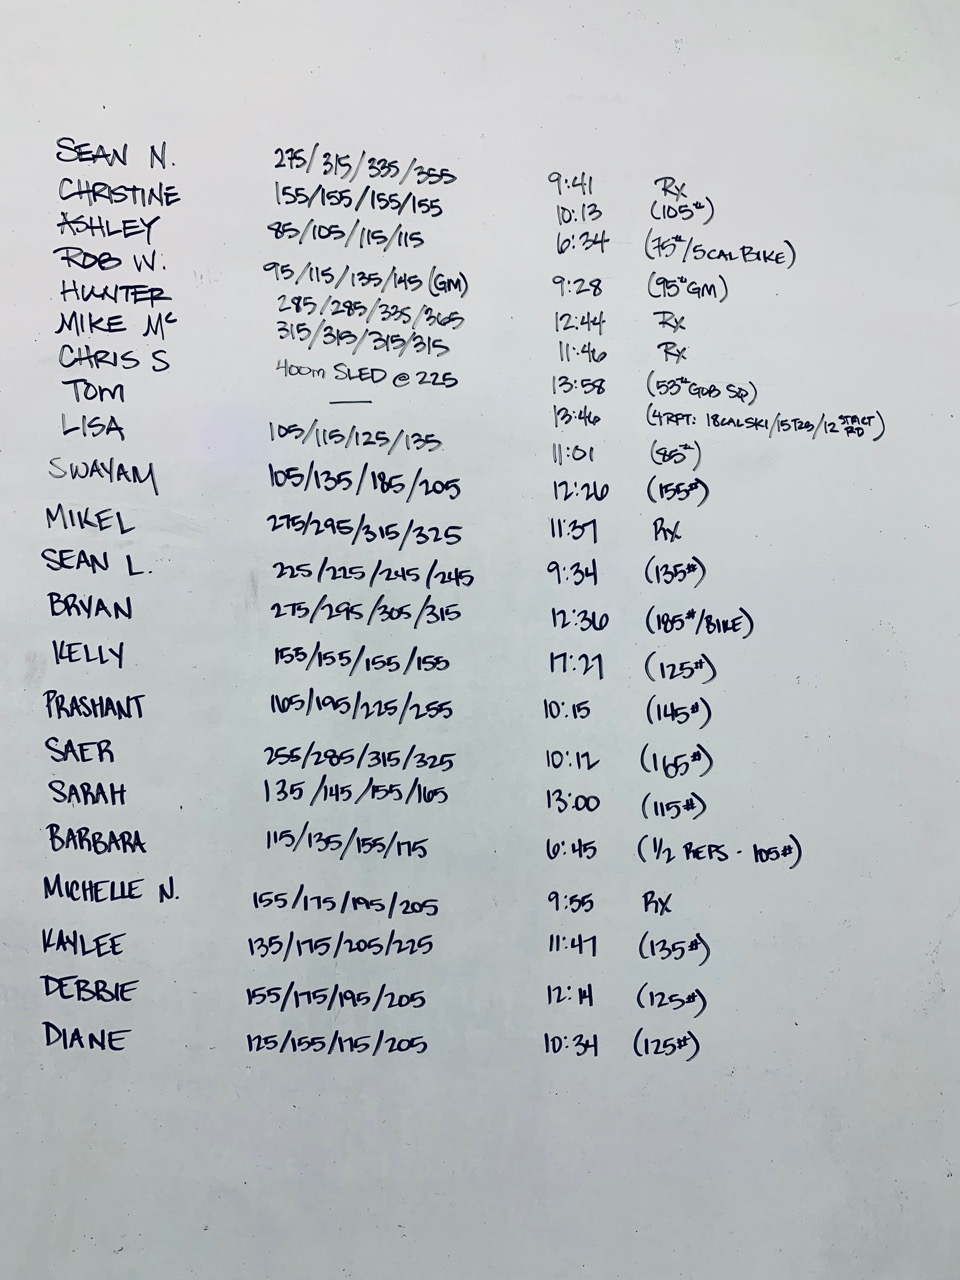 SEAN N. 275/315/335/355 9:41 Rx
CHRISTINE 155/155/155/155 10:13 (105#)
ASHLEY 85/105/115/115 6:34 (75#/5CAL BIKE)
ROB W. 95/115/135/145 (GM) 9:28 (95# GM)
HUNTER 285/285/335/365 12:44 Rx
MIKE Mc 315/315/315/315 11:46 Rx
CHRIS S 400m SLED @ 225 13:58 (53# GOB SQ)
TOM — 13:46 (4RFT: 18CAL SKI/15T2B/12 STRICT RD)
LISA 105/115/125/135 11:01 (85#)
SWAYAM 105/135/185/205 12:26 (155#)
MIKEL 275/295/315/325 11:37 Rx
SEAN L. 225/225/245/245 9:34 (135#)
BRYAN 275/295/305/315 12:36 (185#/BIKE)
KELLY 155/155/155/155 17:27 (125#)
PRASHANT 165/195/225/255 10:15 (145#)
SAER 255/285/315/325 10:12 (165#)
SARAH 135/145/155/165 13:00 (115#)
BARBARA 115/135/155/175 6:45 (1/2 REPS - 105#)
MICHELLE N. 155/175/195/205 9:55 Rx
KAYLEE 135/175/205/225 11:47 (135#)
DEBBIE 155/175/195/205 12:14 (125#)
DIANE 125/155/175/205 10:34 (125#)